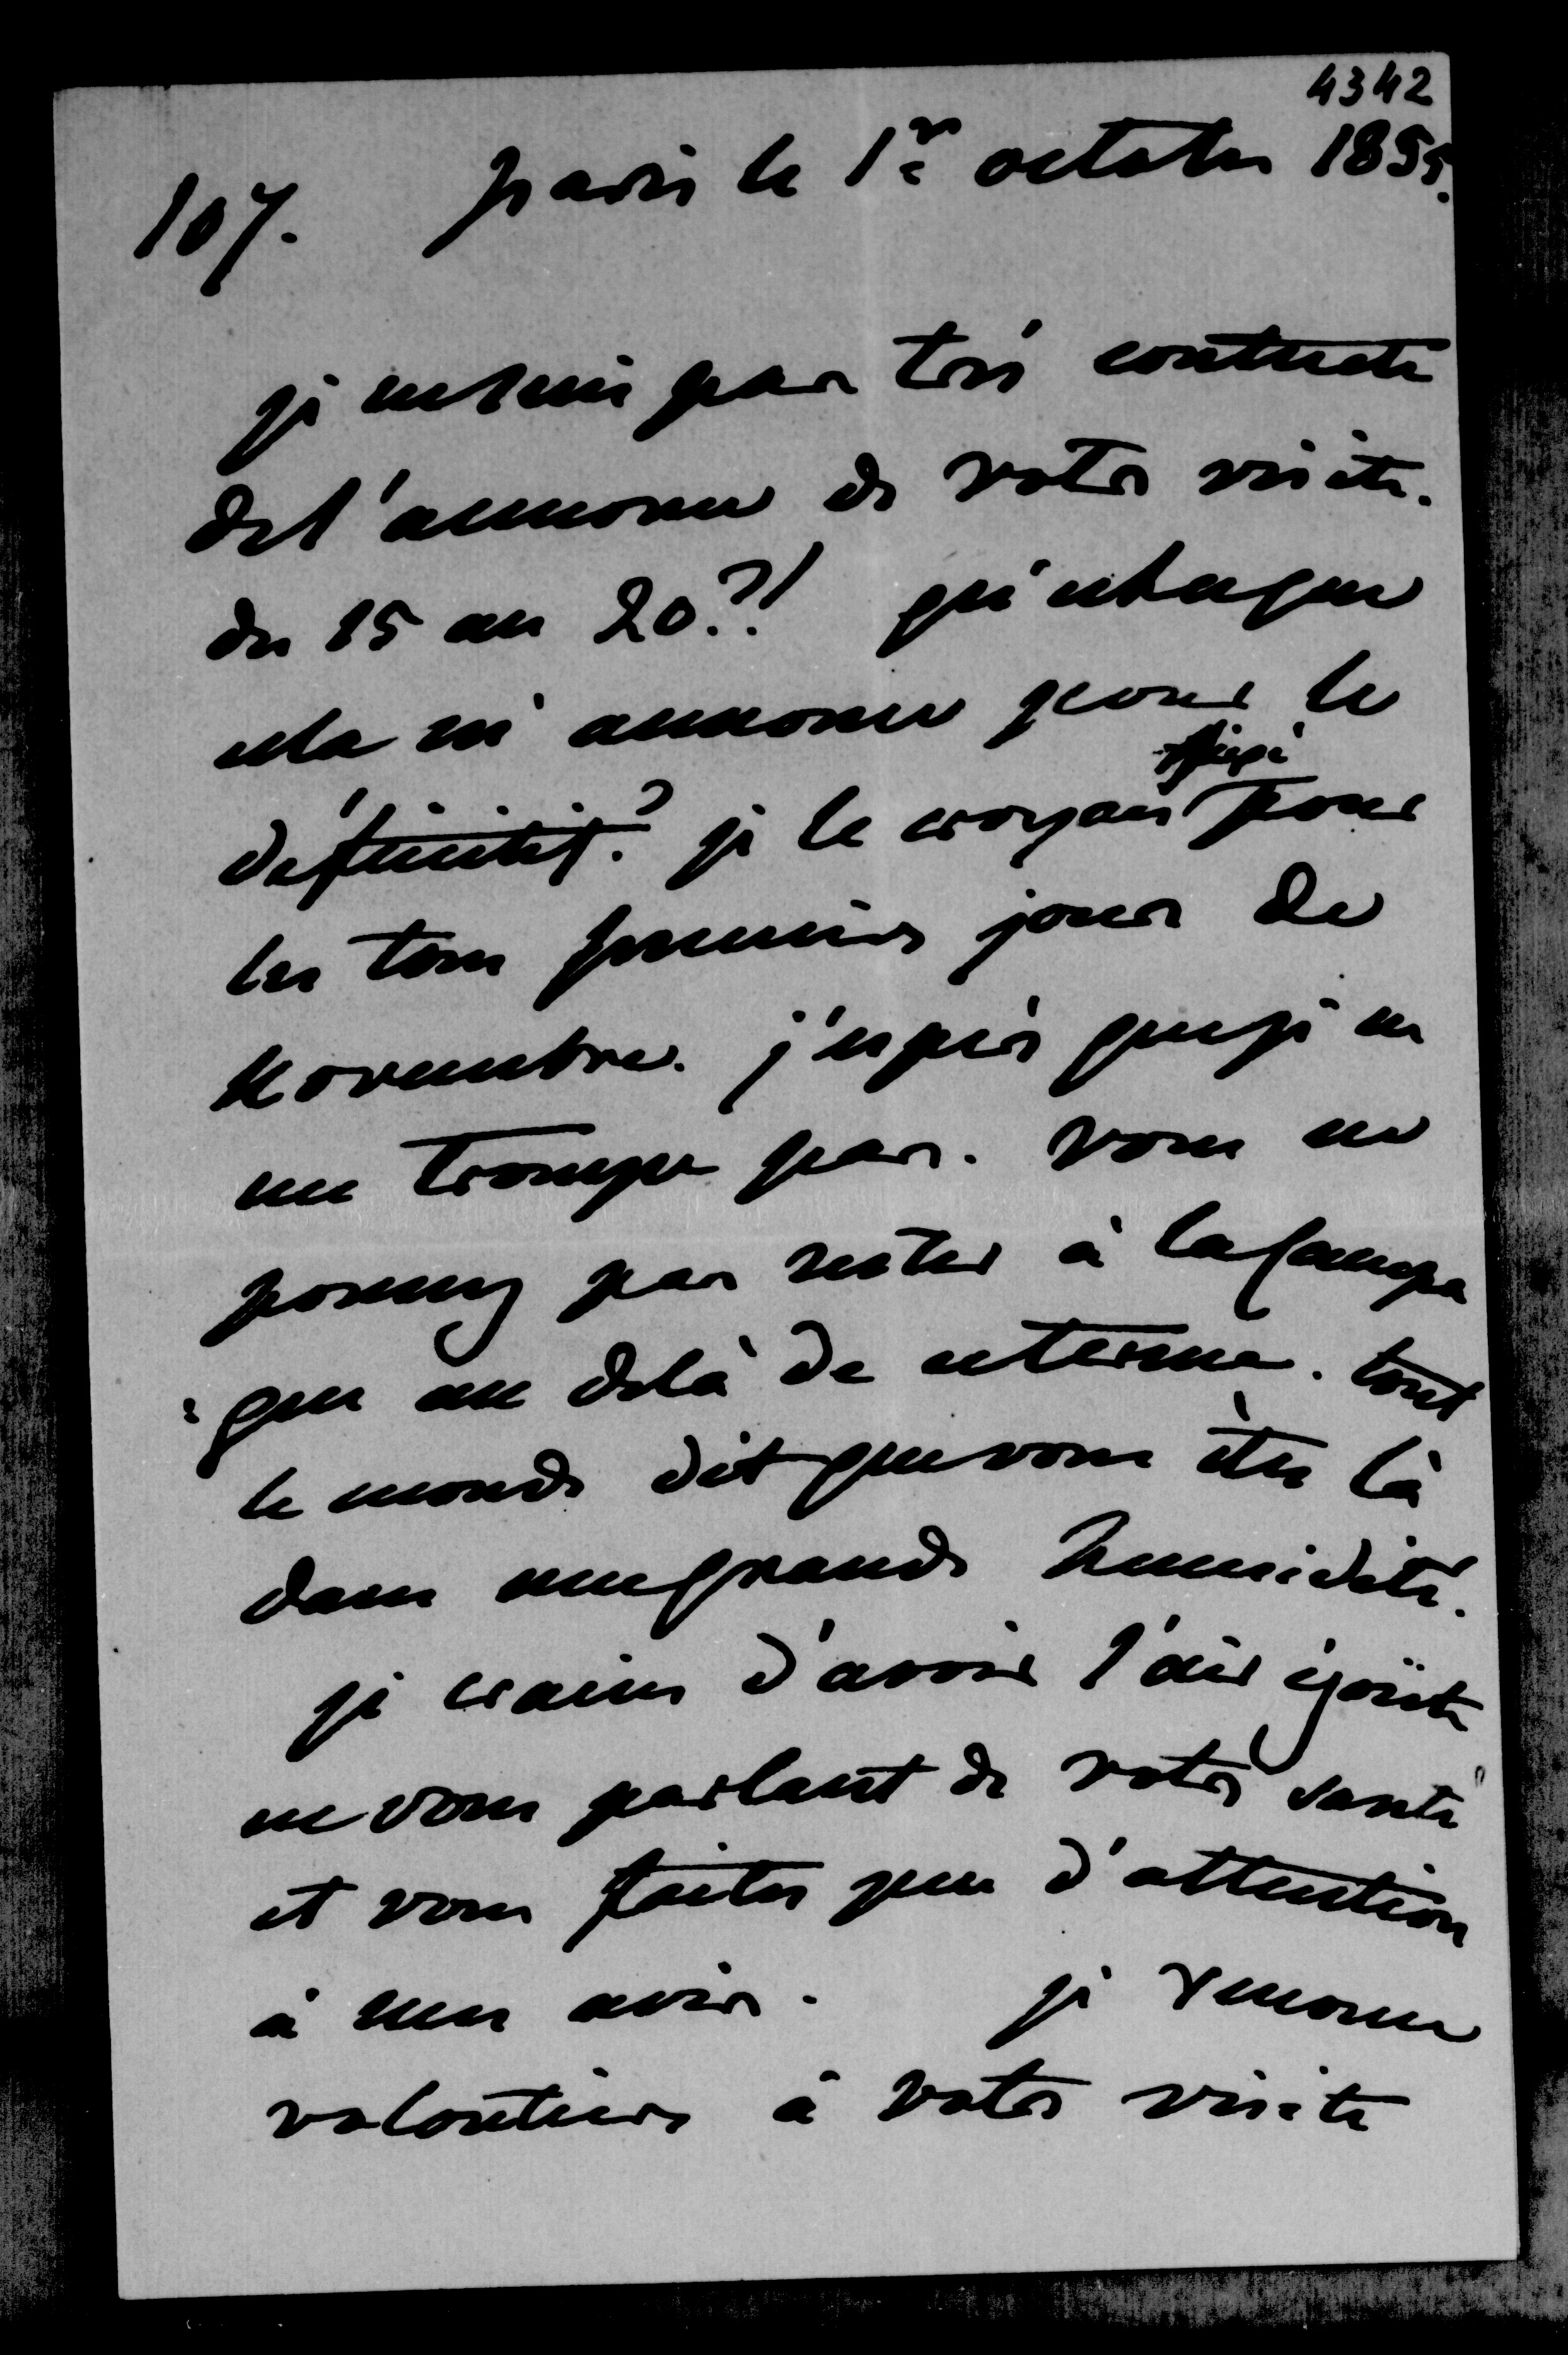 4342
107. paris le 1er octobre 1855.
je ne suis pas très contente
de l'annonce de votre visite.
du 15 au 20?! qu'est ce que
cela m'annonce pour le
définitif? je le croyais fixé pour
les tous premiers jours de
novembre. j'espère que je ne
me trompe pas. vous ne
pouvez pas rester à la campa
=gne au delà de ce terme. tout
le monde dit que vous êtes là
dans une grande humidité.
je crains d'avoir l'air égoïste
en vous parlant de votre santé
et vous faites peu d'attention
à mes avis. je renonce
volontiers à votre visite